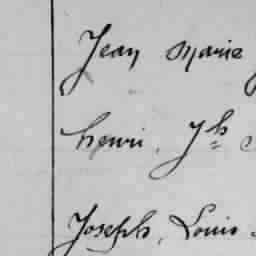 Jean Marie
henri, Jh
Joseph, Louis